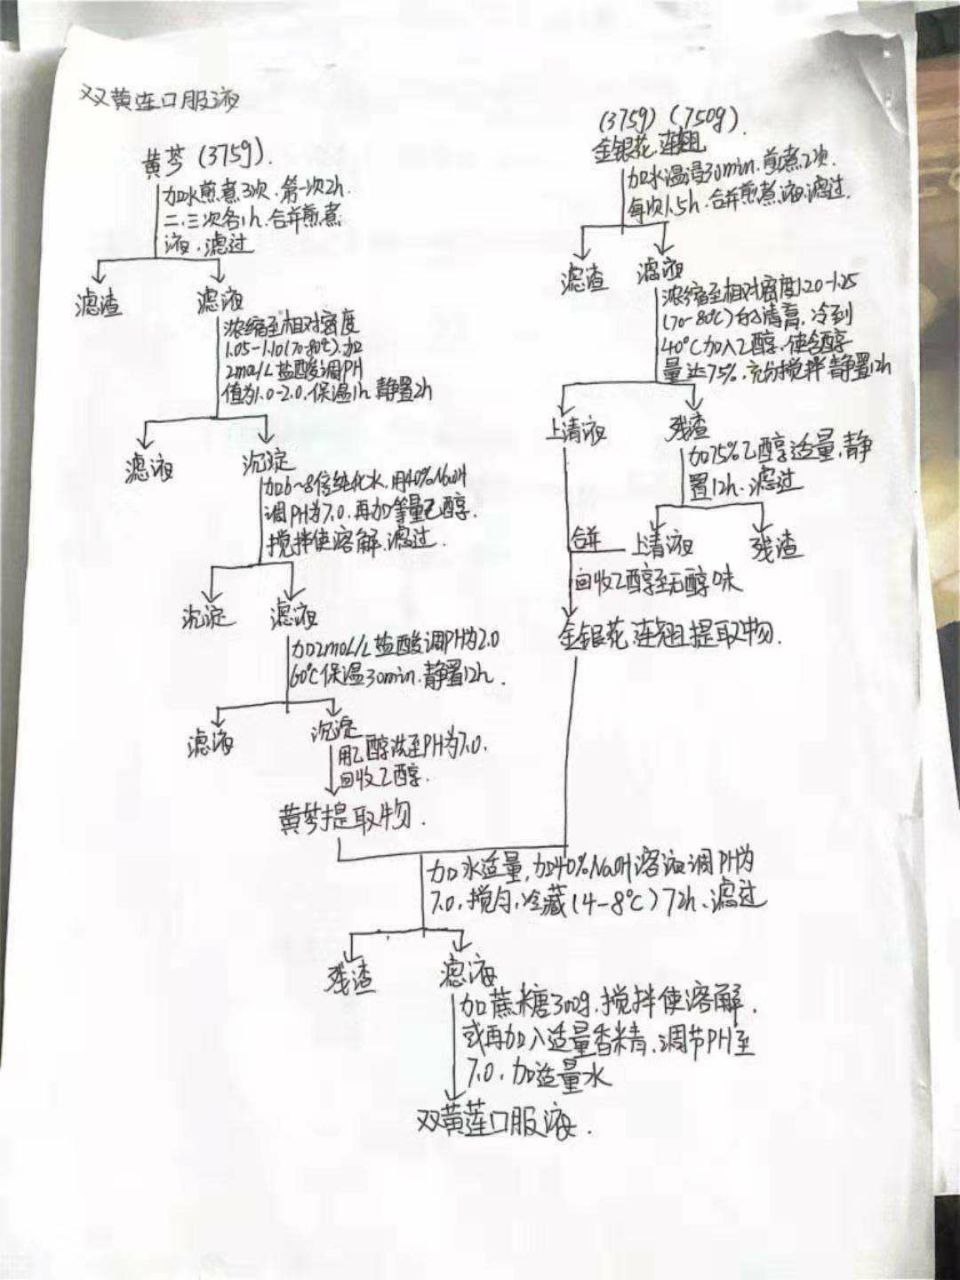 双黄连口服液
黄芩(375g).
加水煎煮3次.第一次2h.
二.三次各1h.合并煎煮
液.滤过
滤渣
滤液
浓缩至相对密度
1.05-1.10(70-80℃).加
2mol/L盐酸调PH
值为1.0-2.0.保温1h.静置12h
滤液
沉淀
加6~8倍纯化水.用40%NaOH
调PH为7.0.再加等量乙醇.
搅拌使溶解.滤过.
沉淀
滤液
加2mol/L盐酸调PH为2.0
60℃保温30min.静置12h.
滤液
沉淀
用乙醇洗至PH为7.0.
回收乙醇.
黄芩提取物.
(375g)(750g).
金银花.连翘
加水温浸30min.煎煮2次.
每次1.5h.合并煎煮液.滤过.
滤渣
滤液
浓缩至相对密度1.20-1.25
(70-80℃)的清膏.冷到
40℃加入乙醇.使含醇
量达75%.充分搅拌.静置12h
上清液
残渣
加75%乙醇适量.静
置12h.滤过
合并
上清液
残渣
回收乙醇至无醇味
金银花.连翘提取物.
加水适量.加40%NaOH溶液调PH为
7.0.搅匀.冷藏(4-8℃)72h.滤过
残渣
滤液
加蔗糖300g.搅拌使溶解.
或再加入适量香精.调节PH至
7.0.加适量水
双黄莲口服液.